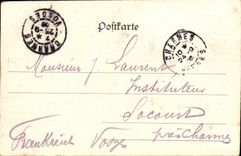 Postkarte
CHARMES
VOSGES
CHARMES
VOSGES
Monsieur J Laurent
Instituteur
Socourt
près Charmes
Frankreich Vosges